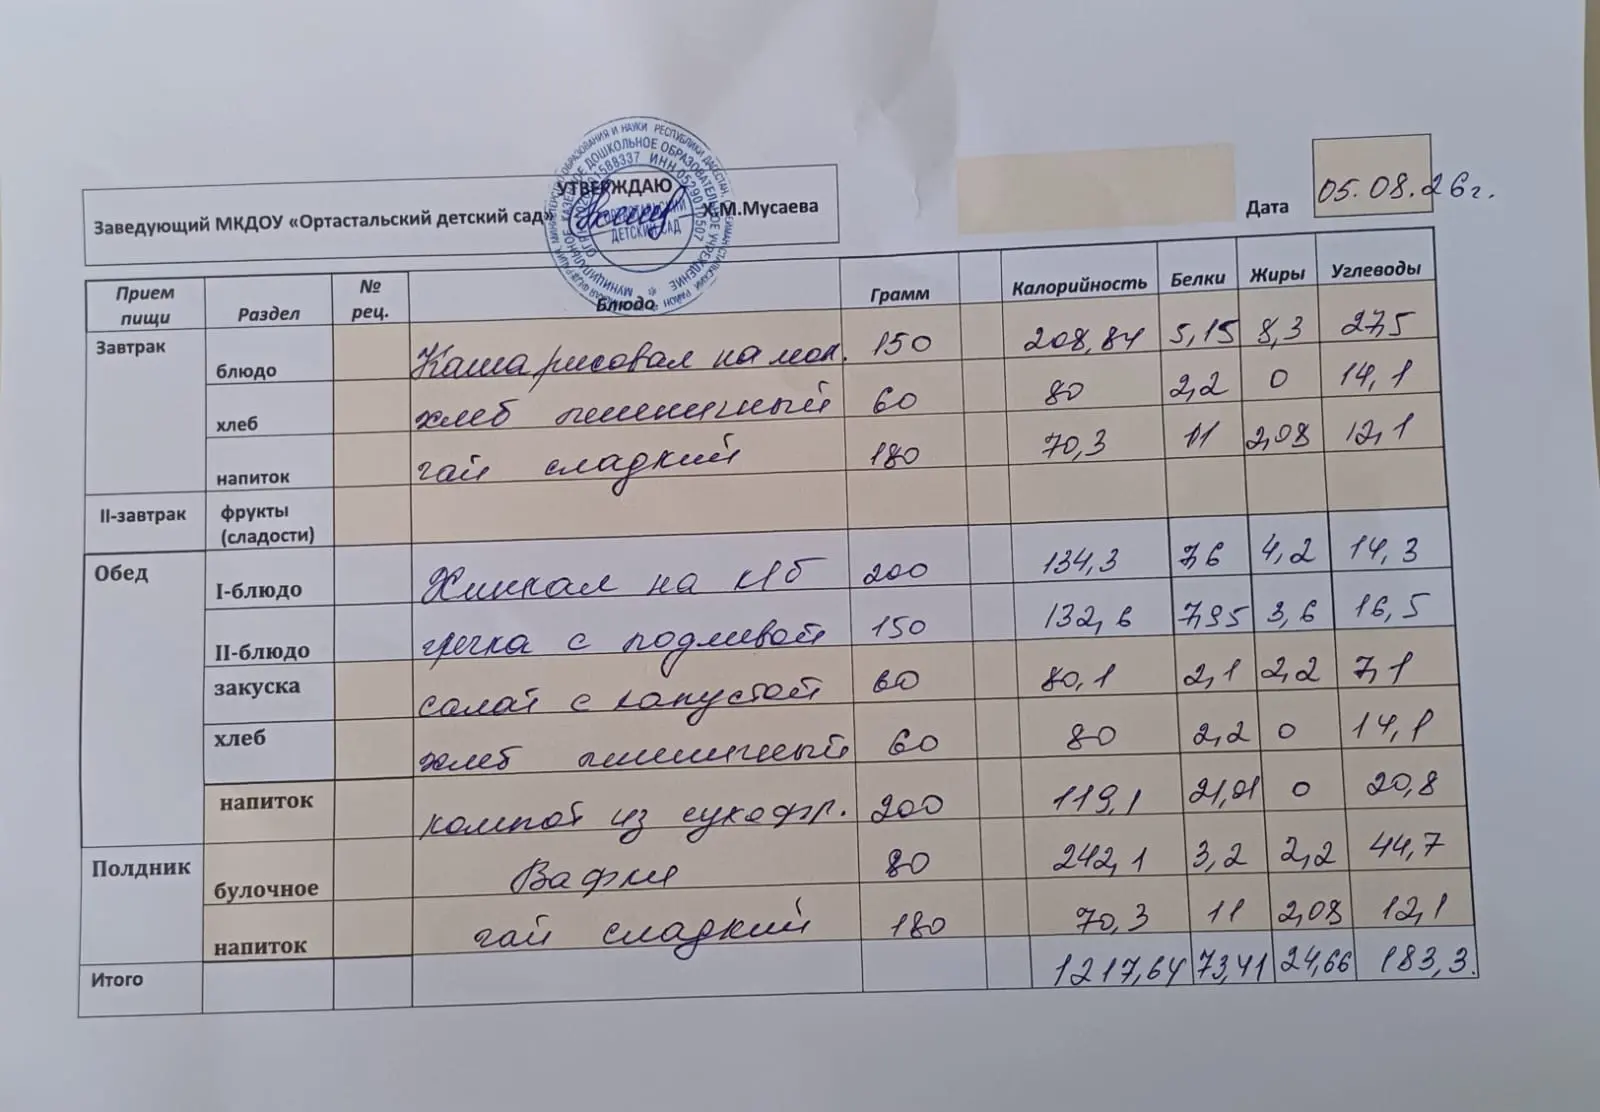 УТВЕРЖДАЮ
Заведующий МКДОУ «Ортастальский детский сад» Х.М.Мусаева
Дата 05.08.26г.
Прием пищи Раздел № рец. Блюдо Грамм Калорийность Белки Жиры Углеводы
Завтрак блюдо Каша рисовая на мол. 150 208,84 5,15 8,3 27,5
хлеб хлеб пшеничный 60 80 2,2 0 14,1
напиток чай сладкий 180 70,3 11 2,08 12,1
II-завтрак фрукты (сладости)
Обед I-блюдо Хинкал на к/б 200 134,3 7,6 4,2 14,3
II-блюдо гречка с подливой 150 132,6 7,95 3,6 16,5
закуска салат с капустой 60 80,1 2,1 2,2 7,1
хлеб хлеб пшеничный 60 80 2,2 0 14,1
напиток компот из сухофр. 200 119,1 21,01 0 20,8
Полдник булочное Вафли 80 242,1 3,2 2,2 44,7
напиток чай сладкий 180 70,3 11 2,08 12,1
Итого 1217,64 73,41 24,66 183,3.